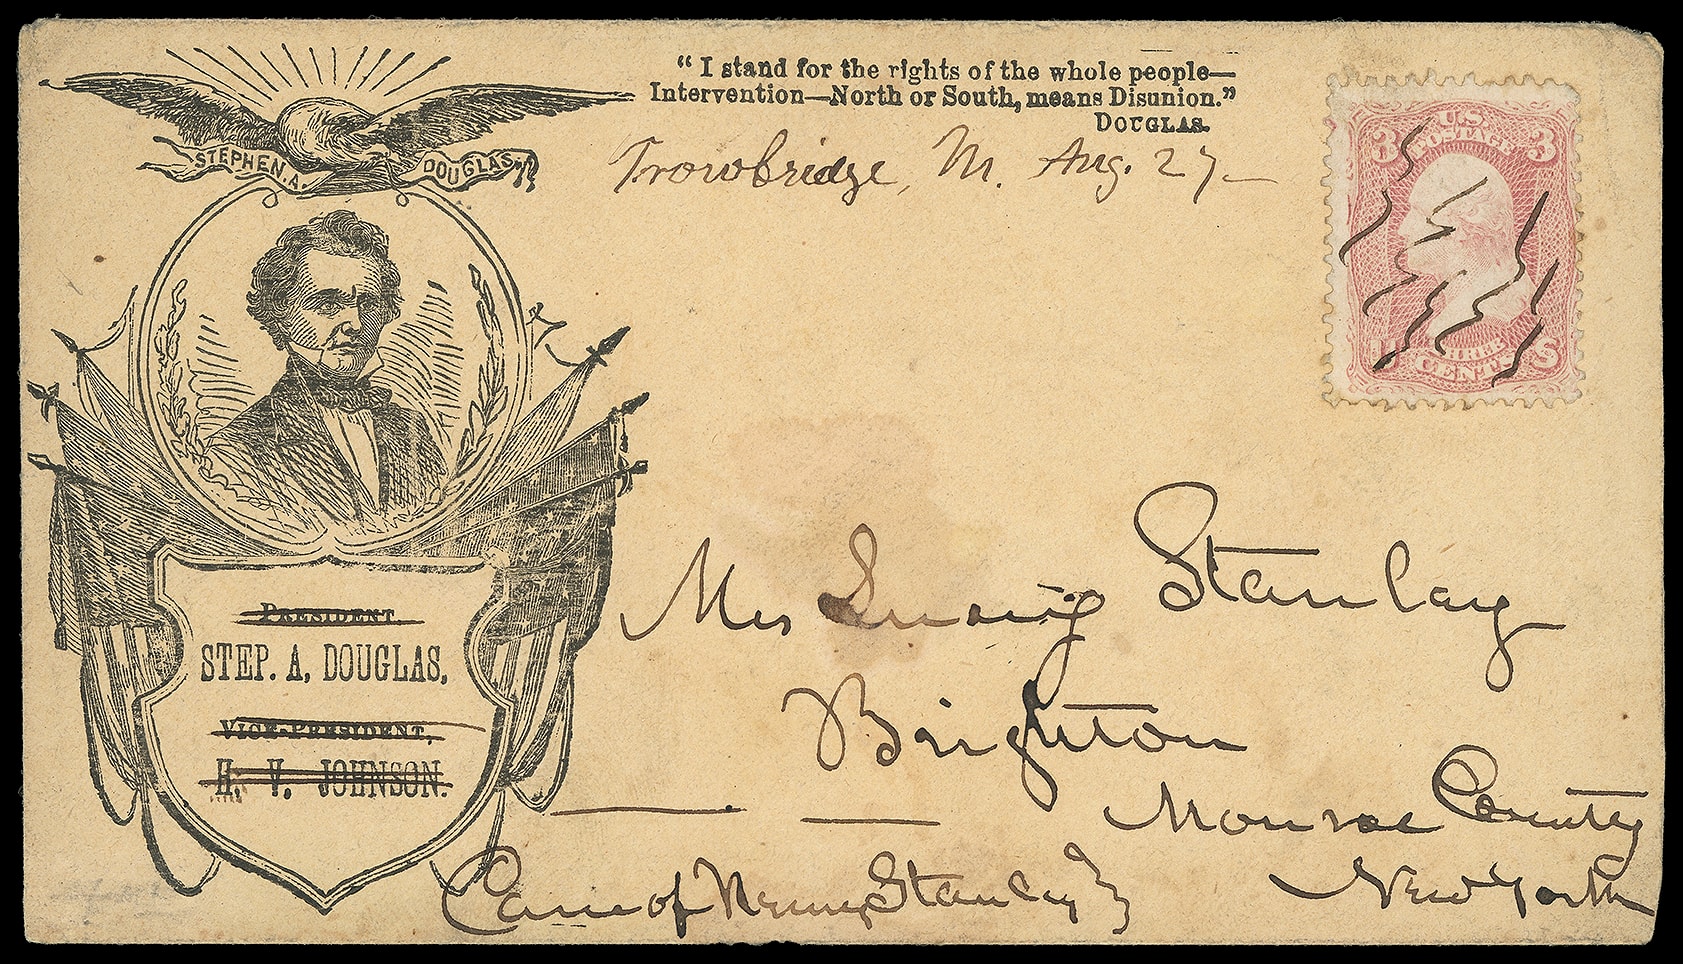 "I stand for the rights of the whole people—
Intervention—North or South, means Disunion."
DOUGLAS.
Trowbridge, M. Aug. 27
STEPHEN. A. DOUGLAS.
3 U.S. POSTAGE 3
U THREE CENTS S
PRESIDENT.
STEP. A. DOUGLAS.
VICE-PRESIDENT,
H. V. JOHNSON.
Stanley
Brighton
Monroe County
New York
Care of Henry Stanley